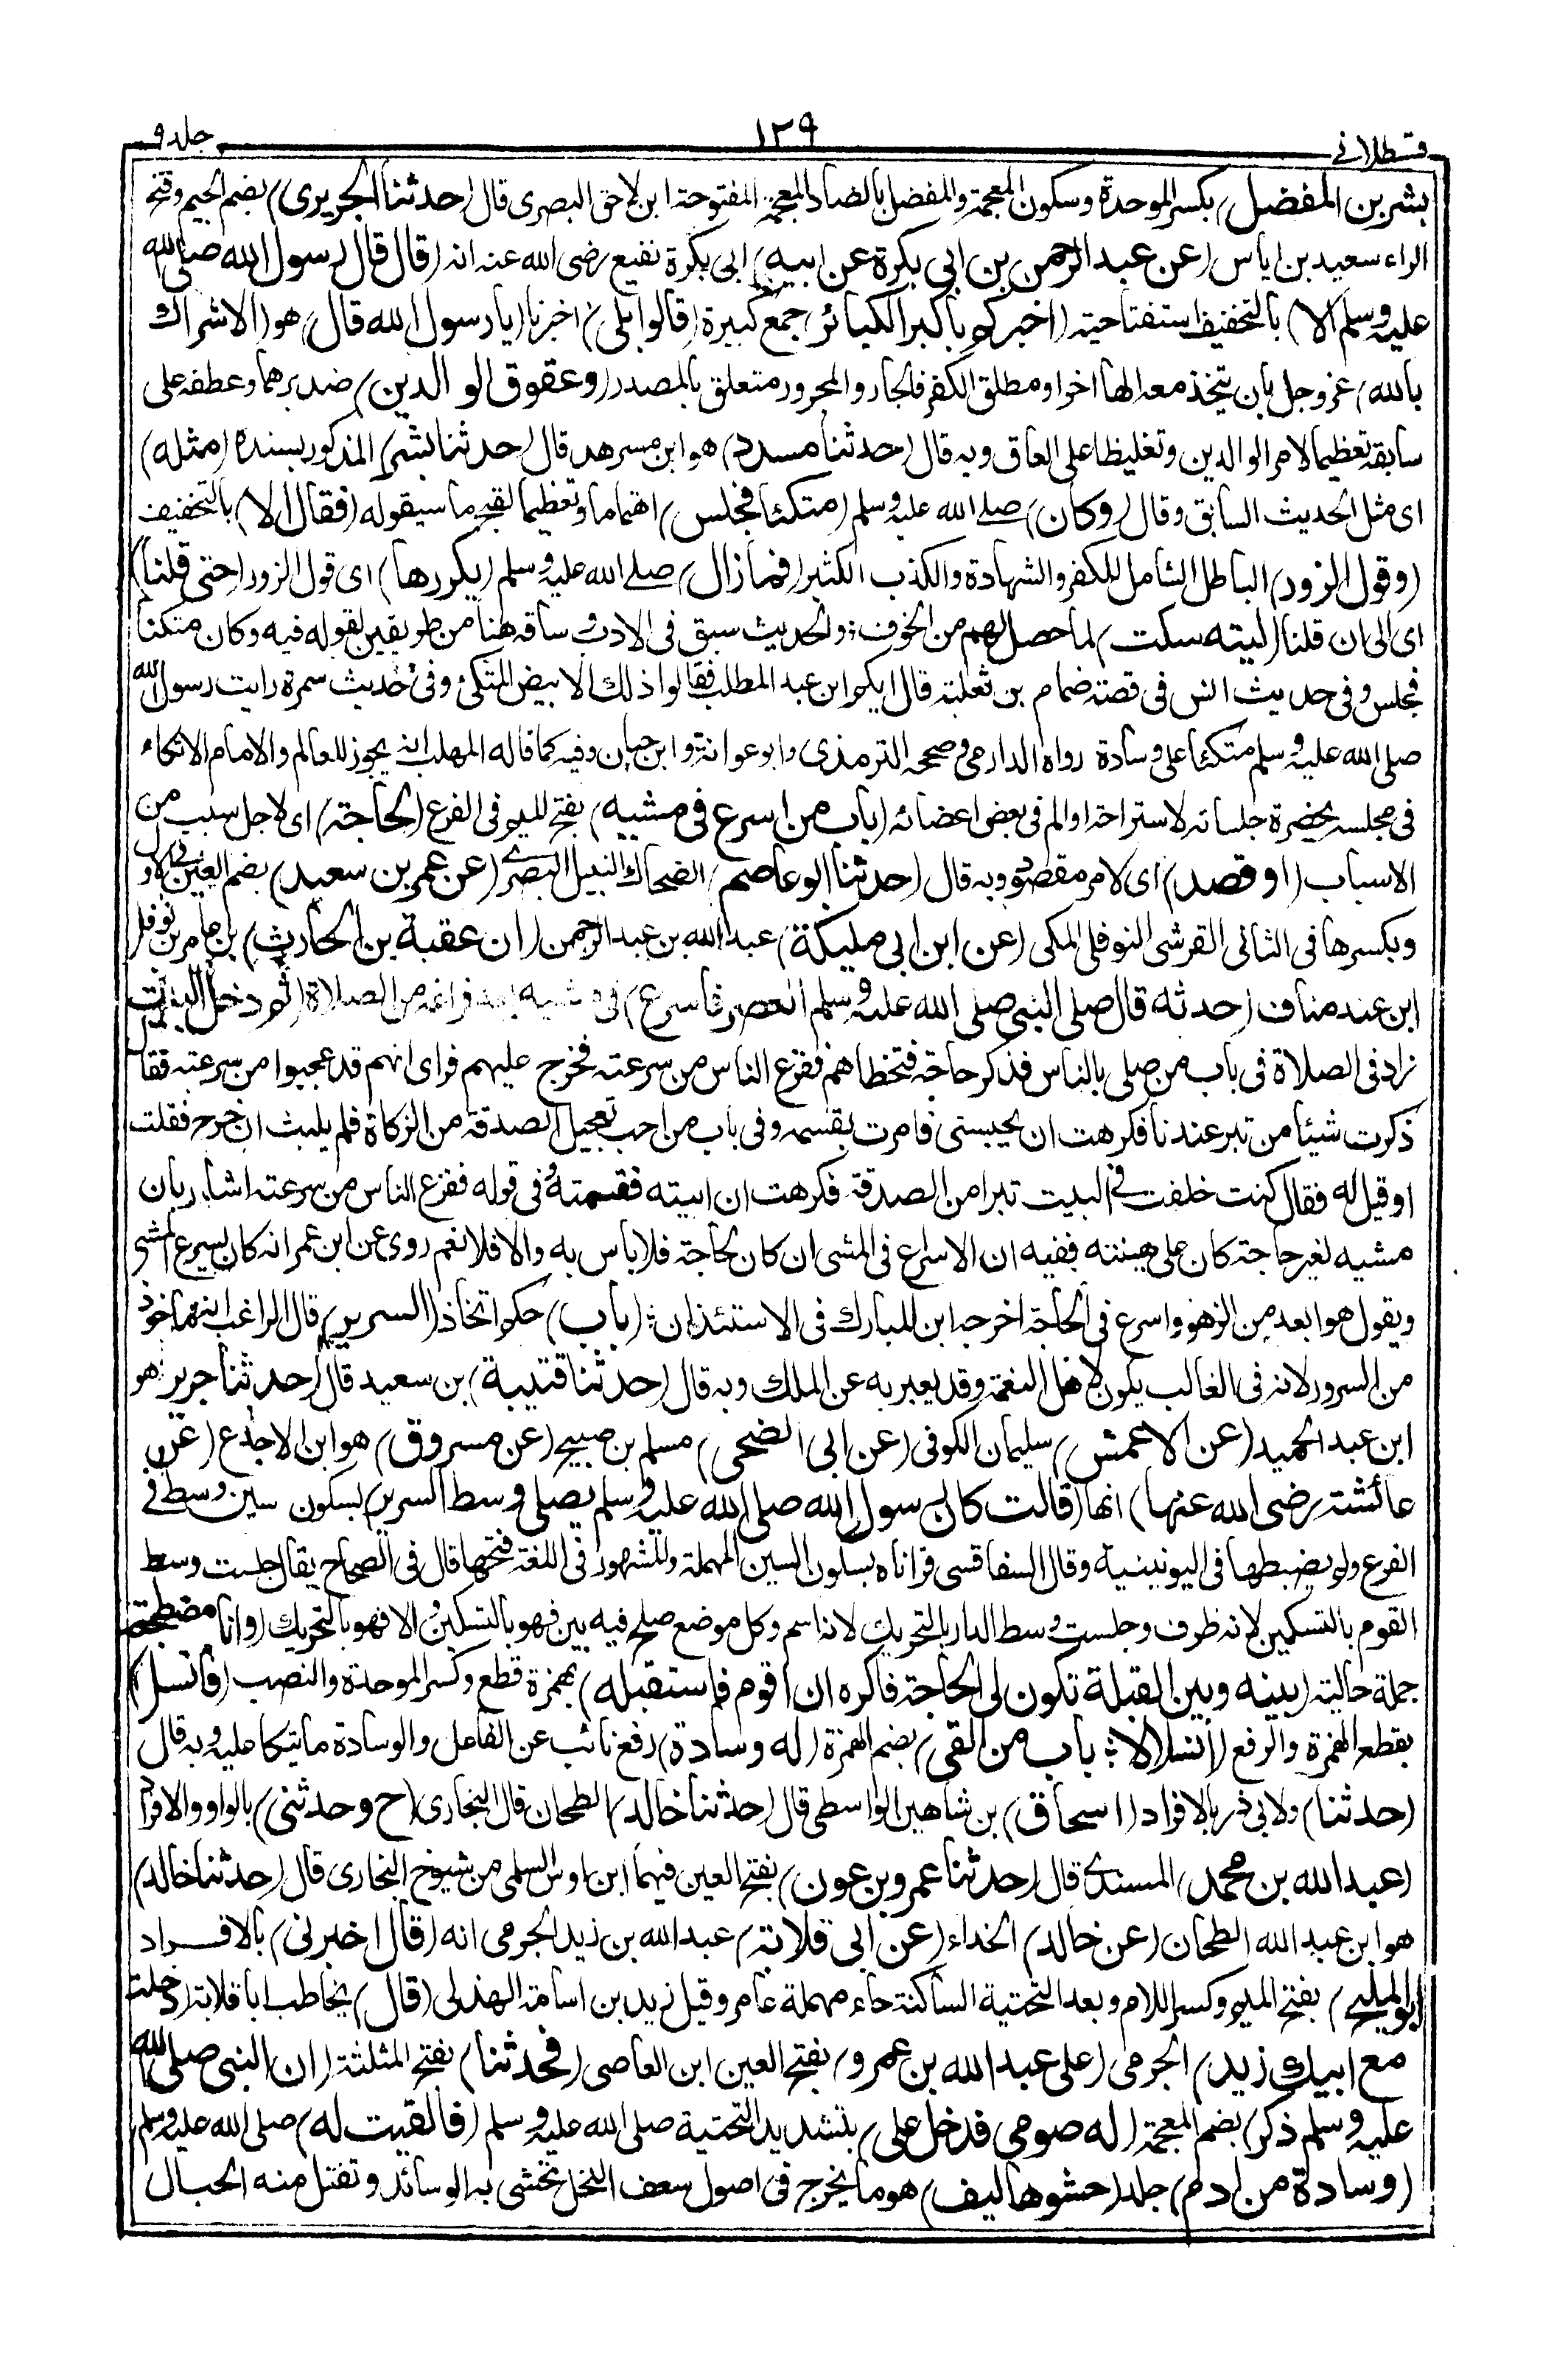 قسطلانی ١٣٩ جلد ٩
بشر بن المفضل) بكسر الموحدة وسكون المعجمة والمفضل بالضاد المعجمة المفتوحة ابن لاحق البصرى قال (حدثنا الجريرى) بضم الجيم وفتح
الراء سعيد بن اياس (عن عبد الرحمن بن ابى بكرة عن ابيه) ابى بكرة نفيع رضى الله عنه انه (قال قال رسول الله صلى الله
عليه وسلم الا) بالتخفيف استفتاحية (اخبركم باكبر الكبائر) جمع كبيرة (قالوا بلى) اخبرنا (يا رسول الله قال) هو (الاشراك
بالله) عز وجل بان يتخذ معه الها اخر او مطلق الكفر فالجار والمجرور متعلق بالمصدر (وعقوق الوالدين) ضد برهما وعطفه على
سابقه تعظيما لامر الوالدين وتغليظا على العاق وبه قال (حدثنا مسدد) هو ابن مسرهد قال (حدثنا بشر) المذكور بسنده (مثله)
اى مثل الحديث السابق وقال (وكان) صلى الله عليه وسلم (متكئا فجلس) اهتماما وتعظيما لقبح ما سيقوله (فقال الا) بالتخفيف
(وقول الزور) الباطل الشامل للكفر والشهادة والكذب الكثير (فما زال) صلى الله عليه وسلم (يكررها) اى قول الزور (حتى قلنا)
اى الى ان قلنا (ليته سكت) لما حصل لهم من الخوف والحديث سبق فى الادب وساقه هنا من طريقين لقوله فيه وكان متكئا
فجلس وفى حديث انس فى قصة ضمام بن ثعلبة قال ايكم ابن عبد المطلب فقالوا ذلك الابيض المتكئ وفى حديث سمرة رايت رسول الله
صلى الله عليه وسلم متكئا على وسادة رواه الدارمى وصححه الترمذى وابو عوانة وابن حبان وفيه كما قاله المهلب انه يجوز للعالم والامام الاتكاء
فى مجلسه بحضرة جلسائه لاستراحة او الم فى بعض اعضائه (باب من اسرع فى مشيه) بفتح الميم فى الفرع (لحاجة) اى لاجل سبب من
الاسباب (او قصد) اى لامر مقصود وبه قال (حدثنا ابو عاصم) الضحاك النبيل البصرى (عن عمر بن سعيد) بضم العين فى الاول
وبكسرها فى الثانى القرشى النوفلى المكى (عن ابن ابى مليكة) عبد الله بن عبد الرحمن (ان عقبة بن الحارث) بن عامر بن نوفل
ابن عبد مناف (حدثه قال صلى النبى صلى الله عليه وسلم العصر فاسرع) فى مشيه بعد فراغه من الصلاة (ثم دخل البيت
زاد فى الصلاة فى باب من صلى بالناس فذكر حاجة فتخطاهم ففزع الناس من سرعته فخرج عليهم فراى انهم قد عجبوا من سرعته فقال
ذكرت شيئا من تبر عندنا فكرهت ان يحبسنى فامرت بقسمه وفى باب من احب تعجيل الصدقة من الزكاة فلم يلبث ان خرج فقلت
او قيل له فقال كنت خلفت فى البيت تبرا من الصدقة فكرهت ان ابيته فقسمته وفى قوله ففزع الناس من سرعته اشار بان
مشيه لغير حاجة كان على هينته ففيه ان الاسراع فى المشى ان كان لحاجة فلا باس به والا فلا نعم روى عن ابن عمر انه كان يسرع المشى
ويقول هو ابعد من الزهو واسرع فى الحاجة اخرجه ابن المبارك فى الاستئذان (باب) حكم اتخاذ (السرير) قال الراغب انه ماخوذ
من السرور لانه فى الغالب يكون لاهل النعمة وقد يعبر به عن الملك وبه قال (حدثنا قتيبة) بن سعيد قال (حدثنا جرير) هو
ابن عبد الحميد (عن الاعمش) سليمان الكوفى (عن ابى الضحى) مسلم بن صبيح (عن مسروق) هو ابن الاجدع (عن
عائشة رضى الله عنها) انها (قالت كان رسول الله صلى الله عليه وسلم يصلى وسط السرير) بسكون سين وسط فى
الفرع ولم يضبطها فى اليونينية وقال السفاقسى قراناه بسكون السين المهملة والمشهور فى اللغة فتحها قال فى الصحاح يقال جلست وسط
القوم بالتسكين لانه ظرف وجلست وسط الدار بالتحريك لانه اسم وكل موضع صلح فيه بين فهو بالتسكين والا فهو بالتحريك (وانا مضطجعة
جملة حالية (بينه وبين القبلة تكون لى الحاجة فاكره ان اقوم فاستقبله) بهمزة قطع وكسر الموحدة والنصب (فانسل)
بقطع الهمزة والرفع (انسلالا باب من القى) بضم الهمزة (له وسادة) رفع نائب عن الفاعل والوسادة ما يتكا عليه وبه قال
(حدثنا) ولابى ذر بالافراد (اسحاق) بن شاهين الواسطى قال (حدثنا خالد) الطحان قال البخارى (ح وحدثنى) بالواو والافراد
(عبد الله بن محمد) المسندى قال (حدثنا عمرو بن عون) بفتح العين فيهما ابن اوس السلمى من شيوخ البخارى قال (حدثنا خالد)
هو ابن عبد الله الطحان (عن خالد) الحذاء (عن ابى قلابة) عبد الله بن زيد الجرمى انه (قال اخبرنى) بالافراد
ابو المليح) بفتح الميم وكسر اللام وبعد التحتية الساكنة حاء مهملة عامر وقيل زيد بن اسامة الهذلى (قال) يخاطب ابا قلابة (دخلت
مع ابيك زيد) الجرمى (على عبد الله بن عمرو) بفتح العين ابن العاصى (فحدثنا) بفتح المثلثة (ان النبى صلى الله
عليه وسلم ذكر) بضم المعجمة (له صومى فدخل على) بتشديد التحتية صلى الله عليه وسلم (فالقيت له) صلى الله عليه وسلم
(وسادة من ادم) جلد (حشوها ليف) هو ما يخرج فى اصول سعف النخل تحشى به الوسائد وتفتل منه الحبال